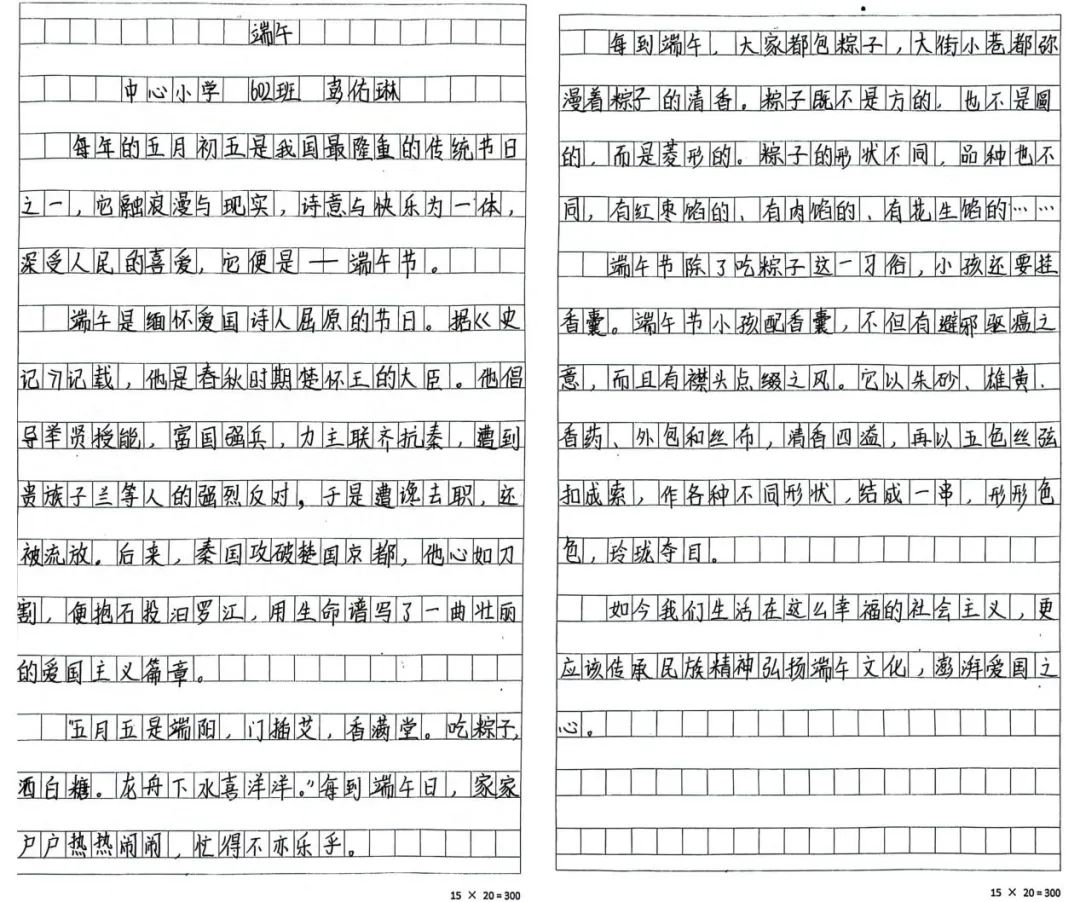 端午
中心小学 602班 彭佑琳
每年的五月初五是我国最隆重的传统节日
之一，它融浪漫与现实，诗意与快乐为一体，
深受人民的喜爱，它便是——端午节。
端午是缅怀爱国诗人屈原的节日。据《史
记》记载，他是春秋时期楚怀王的大臣。他倡
导举贤授能，富国强兵，力主联齐抗秦，遭到
贵族子兰等人的强烈反对，于是遭谗去职，还
被流放。后来，秦国攻破楚国京都，他心如刀
割，便抱石投汩罗江，用生命谱写了一曲壮丽
的爱国主义篇章。
“五月五是端阳，门插艾，香满堂。吃粽子，
洒白糖。龙舟下水喜洋洋。”每到端午日，家家
户户热热闹闹，忙得不亦乐乎。
15 × 20=300
每到端午，大家都包粽子，大街小巷都弥
漫着粽子的清香。粽子既不是方的，也不是圆
的，而是菱形的。粽子的形状不同，品种也不
同，有红枣馅的、有肉馅的、有花生馅的……
端午节除了吃粽子这一习俗，小孩还要挂
香囊。端午节小孩配香囊，不但有避邪驱瘟之
意，而且有襟头点缀之风。它以朱砂、雄黄、
香药、外包和丝布，清香四溢，再以五色丝弦
扣成索，作各种不同形状，结成一串，形形色
色，玲珑夺目。
如今我们生活在这么幸福的社会主义，更
应该传承民族精神弘扬端午文化，澎湃爱国之
心。
15 × 20=300